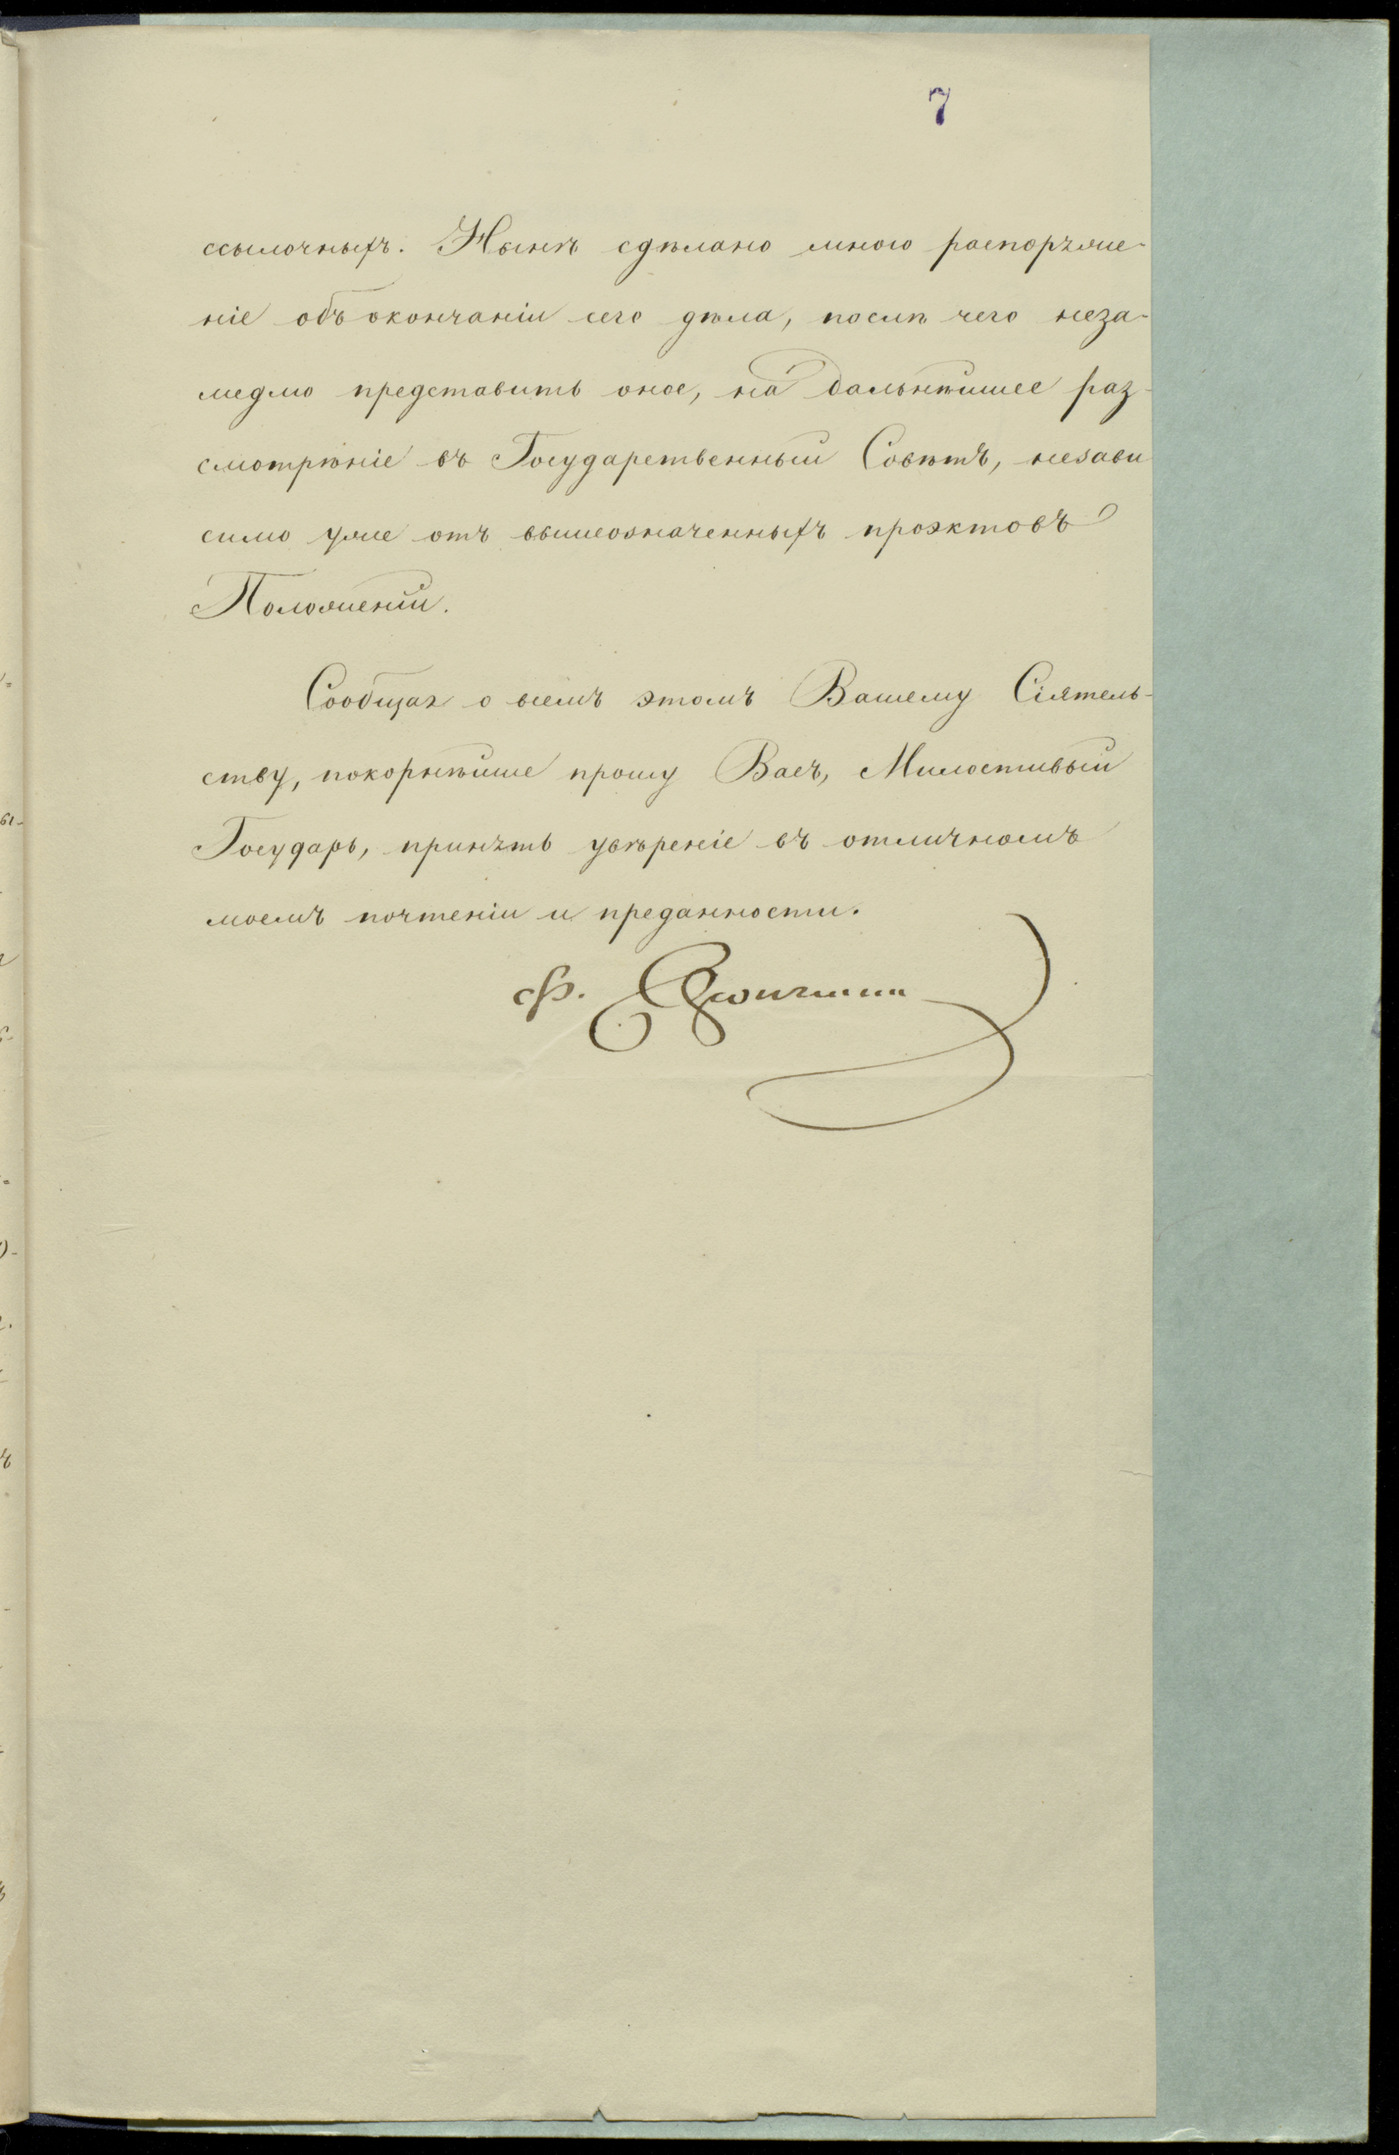 7
ссылочныхъ. Нынѣ сдѣлано мною распоряже-
ніе объ окончаніи сего дѣла, послѣ чего неза-
медлю представить оное, на дальнѣйшее раз-
смотрѣніе въ Государственный Совѣтъ, незави
симо уже отъ вышеозначенныхъ проэктовъ
Положеній.
Сообщая о всемъ этомъ Вашему Сіятель-
ству, покорнѣйше прошу Васъ, Милостивый
Государь, принять увѣреніе въ отличномъ
моемъ почтеніи и преданности.